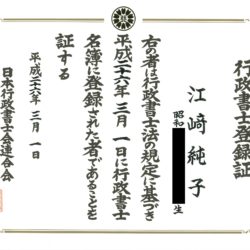 行政書士登録証
江﨑純子
昭和
生
右の者は行政書士法の規定に基づき
平成二十六年三月一日に行政書士
名簿に登録された者であることを
証する
平成二十六年三月一日
日本行政書士会連合会